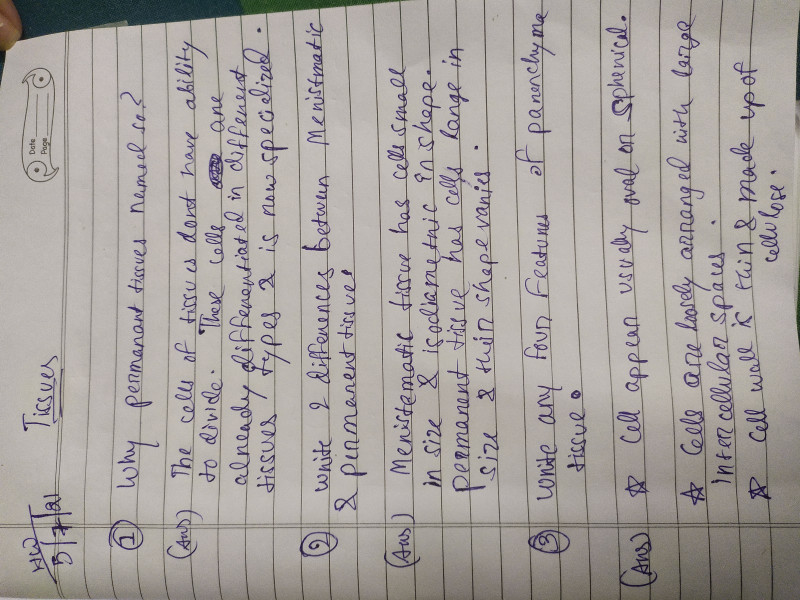 Date
Page
HW
5/7/21
Tissues
① Why permanant tissues named so?
(Ans) The cells of tissues dont have ability
to divide. These cells are
already differentiated in different
tissues, types & is now specialized.
② write 2 differences between Meristmatic
& permanent tissues
(Ans) Meristematic tissue has cells small
in size & isodiametric in shape.
permanent tissue has cells range in
size & their shape varies.
③ write any four features of parenchyma
tissue.
(Ans) ☆ Cell appear usually oval or spherical.
☆ Cells are loosely arranged with large
intercellular spaces.
☆ Cell wall is thin & made up of
cellulose.